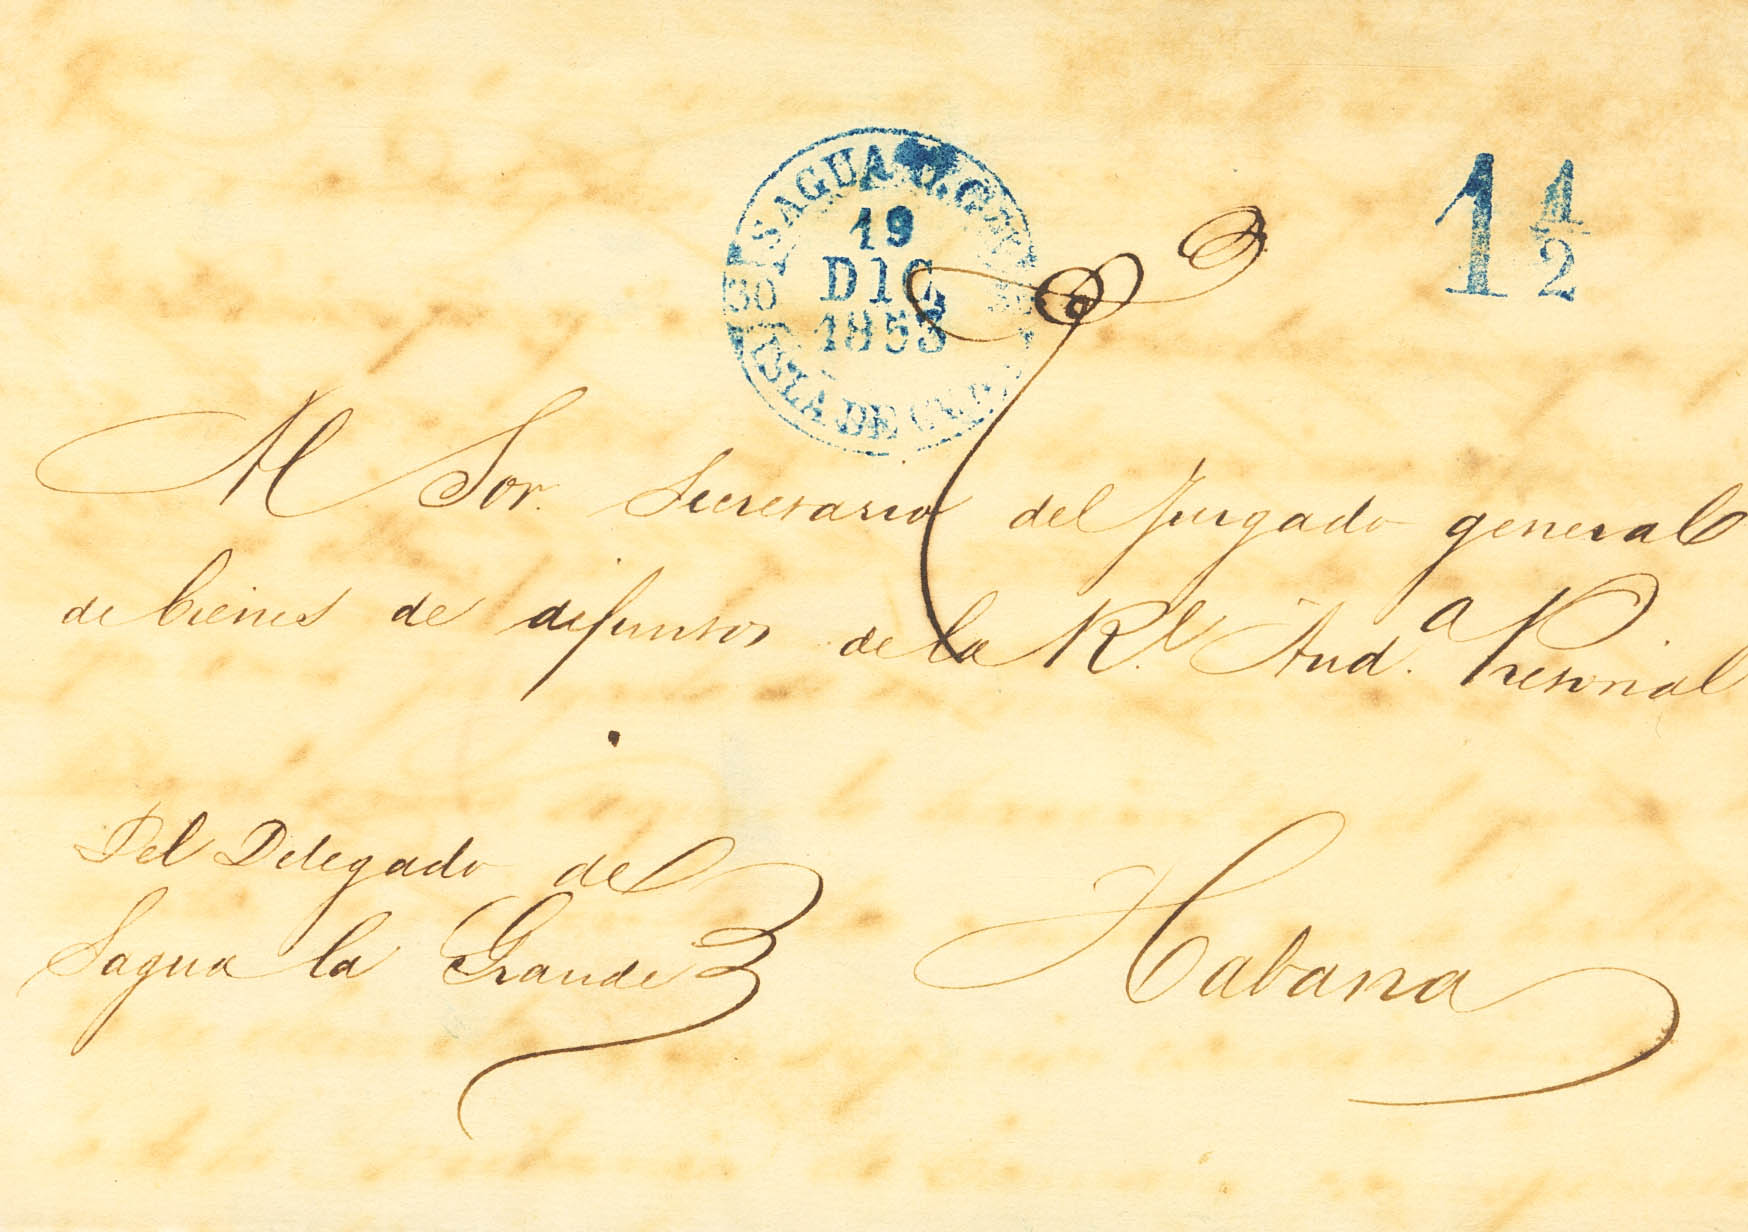 SAGUA
19
DIC
1853
ISLA DE CUBA
1 1/2
Al Sor. Secretario del Jusgado general
de bienes de difuntos de la Rl. Auda.
Del Delegado de
Sagua la Grande
Habana